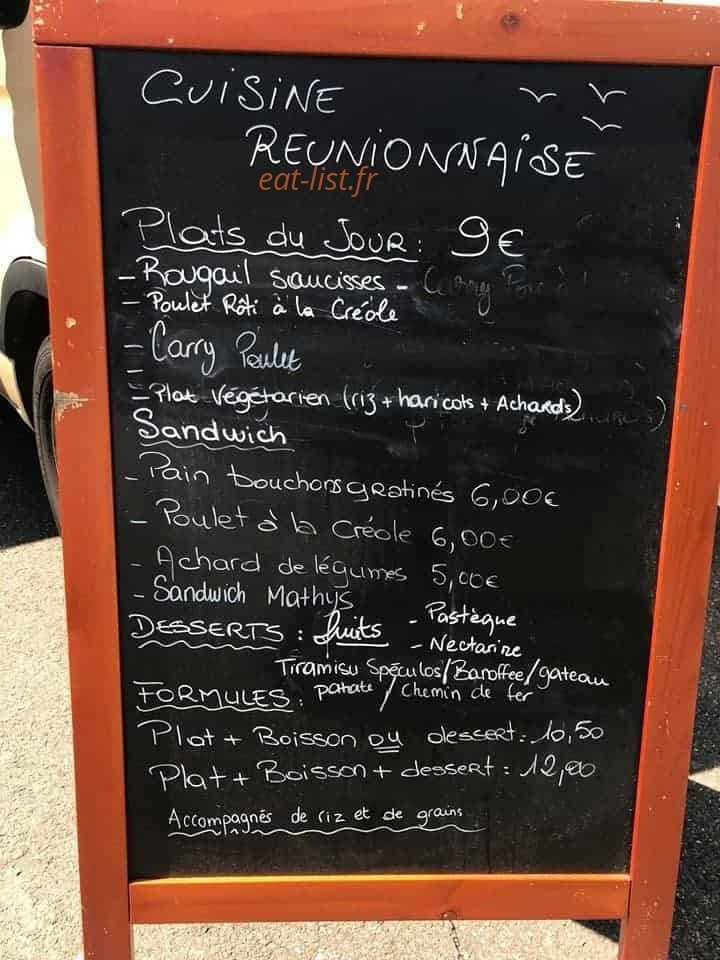 CUISINE
REUNIONNAISE
eat-list.fr
Plats du JOUR: 9€
- Rougail saucisses - Carry
- Poulet Rôti à la Créole
- Carry Poulet
-
- Plat végétarien (riz + haricots + Achards)
Sandwich
- Pain bouchons gratinés 6,00€
- Poulet à la Créole 6,00€
- Achard de légumes 5,00€
- Sandwich Mathys
DESSERTS: fruits - Pastèque
- Nectarine
Tiramisu Spéculos/Banoffee/gateau
patate / Chemin de fer
FORMULES:
Plat + Boisson ou dessert: 10,50
Plat + Boisson + dessert: 12,00
Accompagnés de riz et de grains